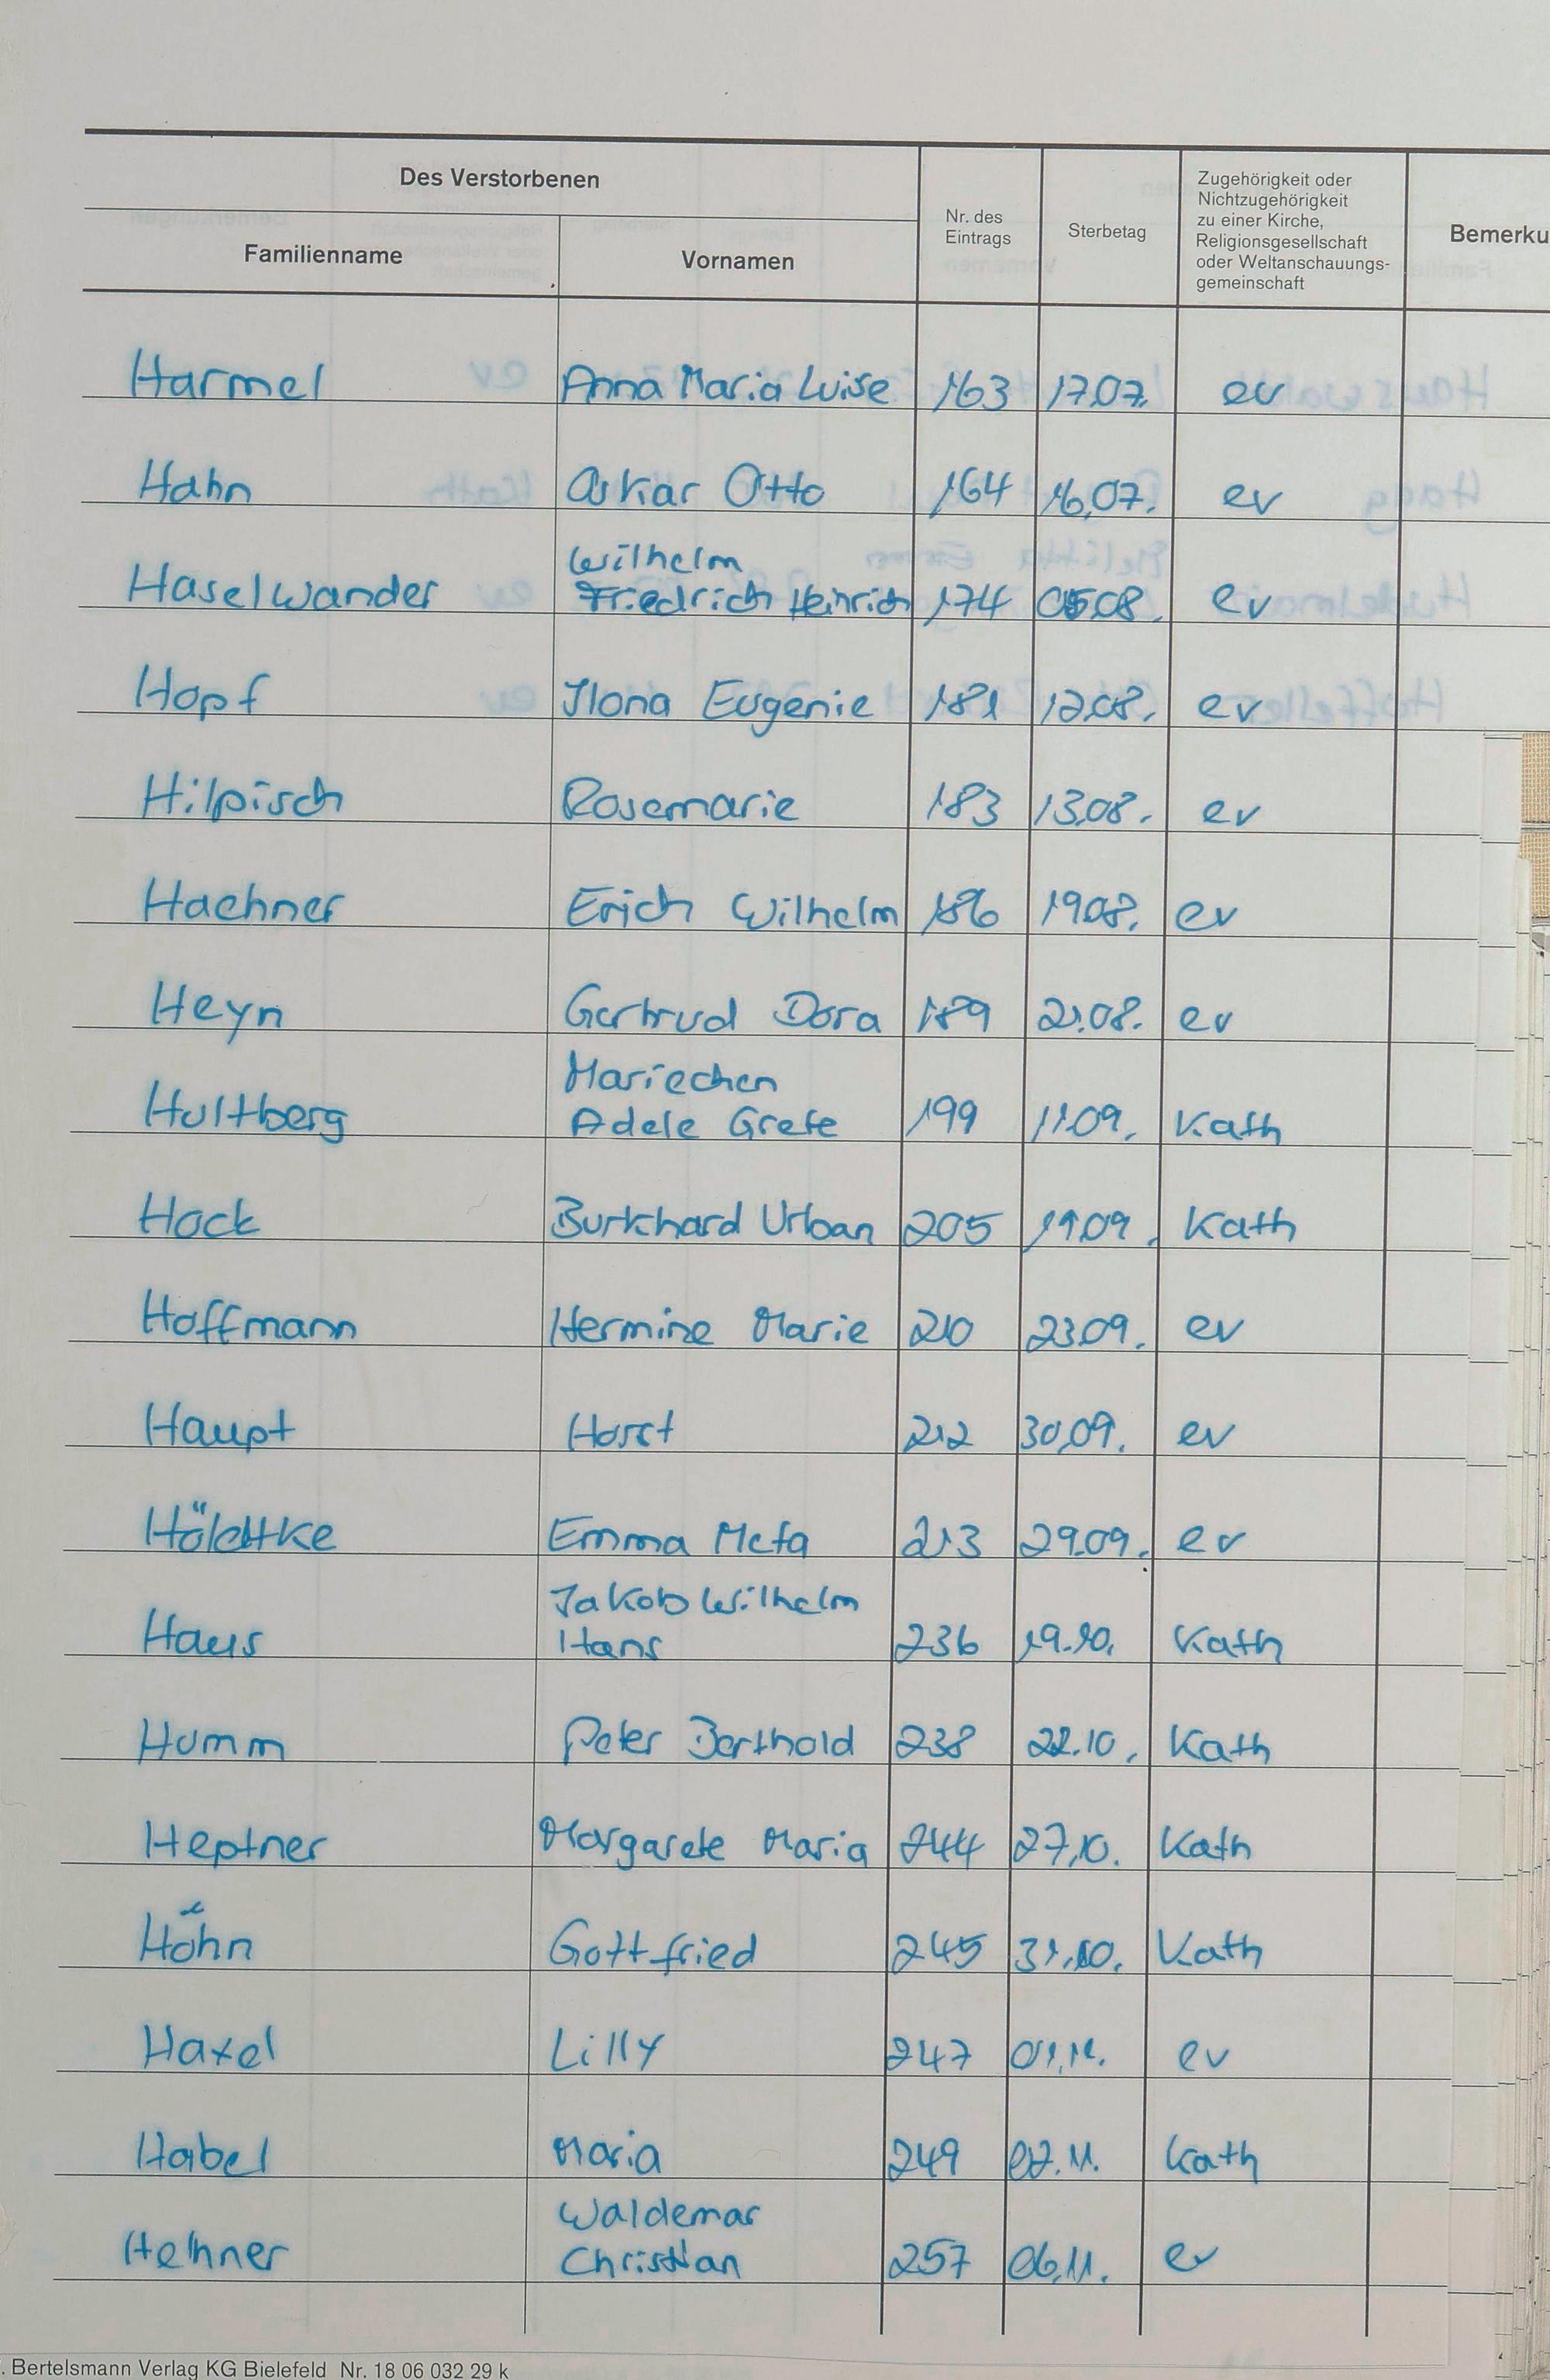 Des Verstorbenen
Familienname
Vornamen
Nr. des
Eintrags
Sterbetag
Zugehörigkeit oder
Nichtzugehörigkeit
zu einer Kirche,
Religionsgesellschaft
oder Weltanschauungs-
gemeinschaft
Bemerku
Harmel Anna Maria Luise 163 17.07. ev
Hahn Oskar Otto 164 16.07. ev
Wilhelm
Haselwander Friedrich Heinrich 174 05.08. ev
Hopf Ilona Eugenie 181 12.08. ev
Hilpisch Rosemarie 183 13.08. ev
Haehner Erich Wilhelm 186 19.08. ev
Heyn Gertrud Dora 189 21.08. ev
Mariechen
Hultberg Adele Grete 199 11.09. Kath
Hock Burkhard Urban 205 19.09. Kath
Hoffmann Hermine Marie 210 23.09. ev
Haupt Horst 212 30.09. ev
Höldtke Emma Meta 213 29.09. ev
Jakob Wilhelm
Haus Hans 236 19.10. Kath
Humm Peter Berthold 238 22.10. Kath
Heptner Margarete Maria 244 27.10. Kath
Höhn Gottfried 245 31.10. Kath
Haxel Lilly 247 ev
Habel Maria 249 Kath
Waldemar
Hehner Christian 257 06.11. ev
. Bertelsmann Verlag KG Bielefeld Nr. 18 06 032 29 k